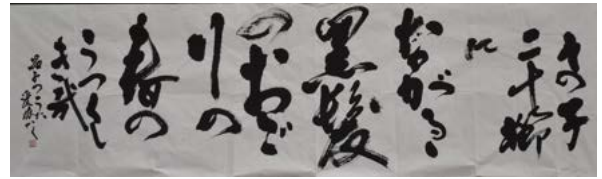 その子
二十櫛
に
ながるゝ
黒髪
のおご
りの
春の
うつくし
き哉